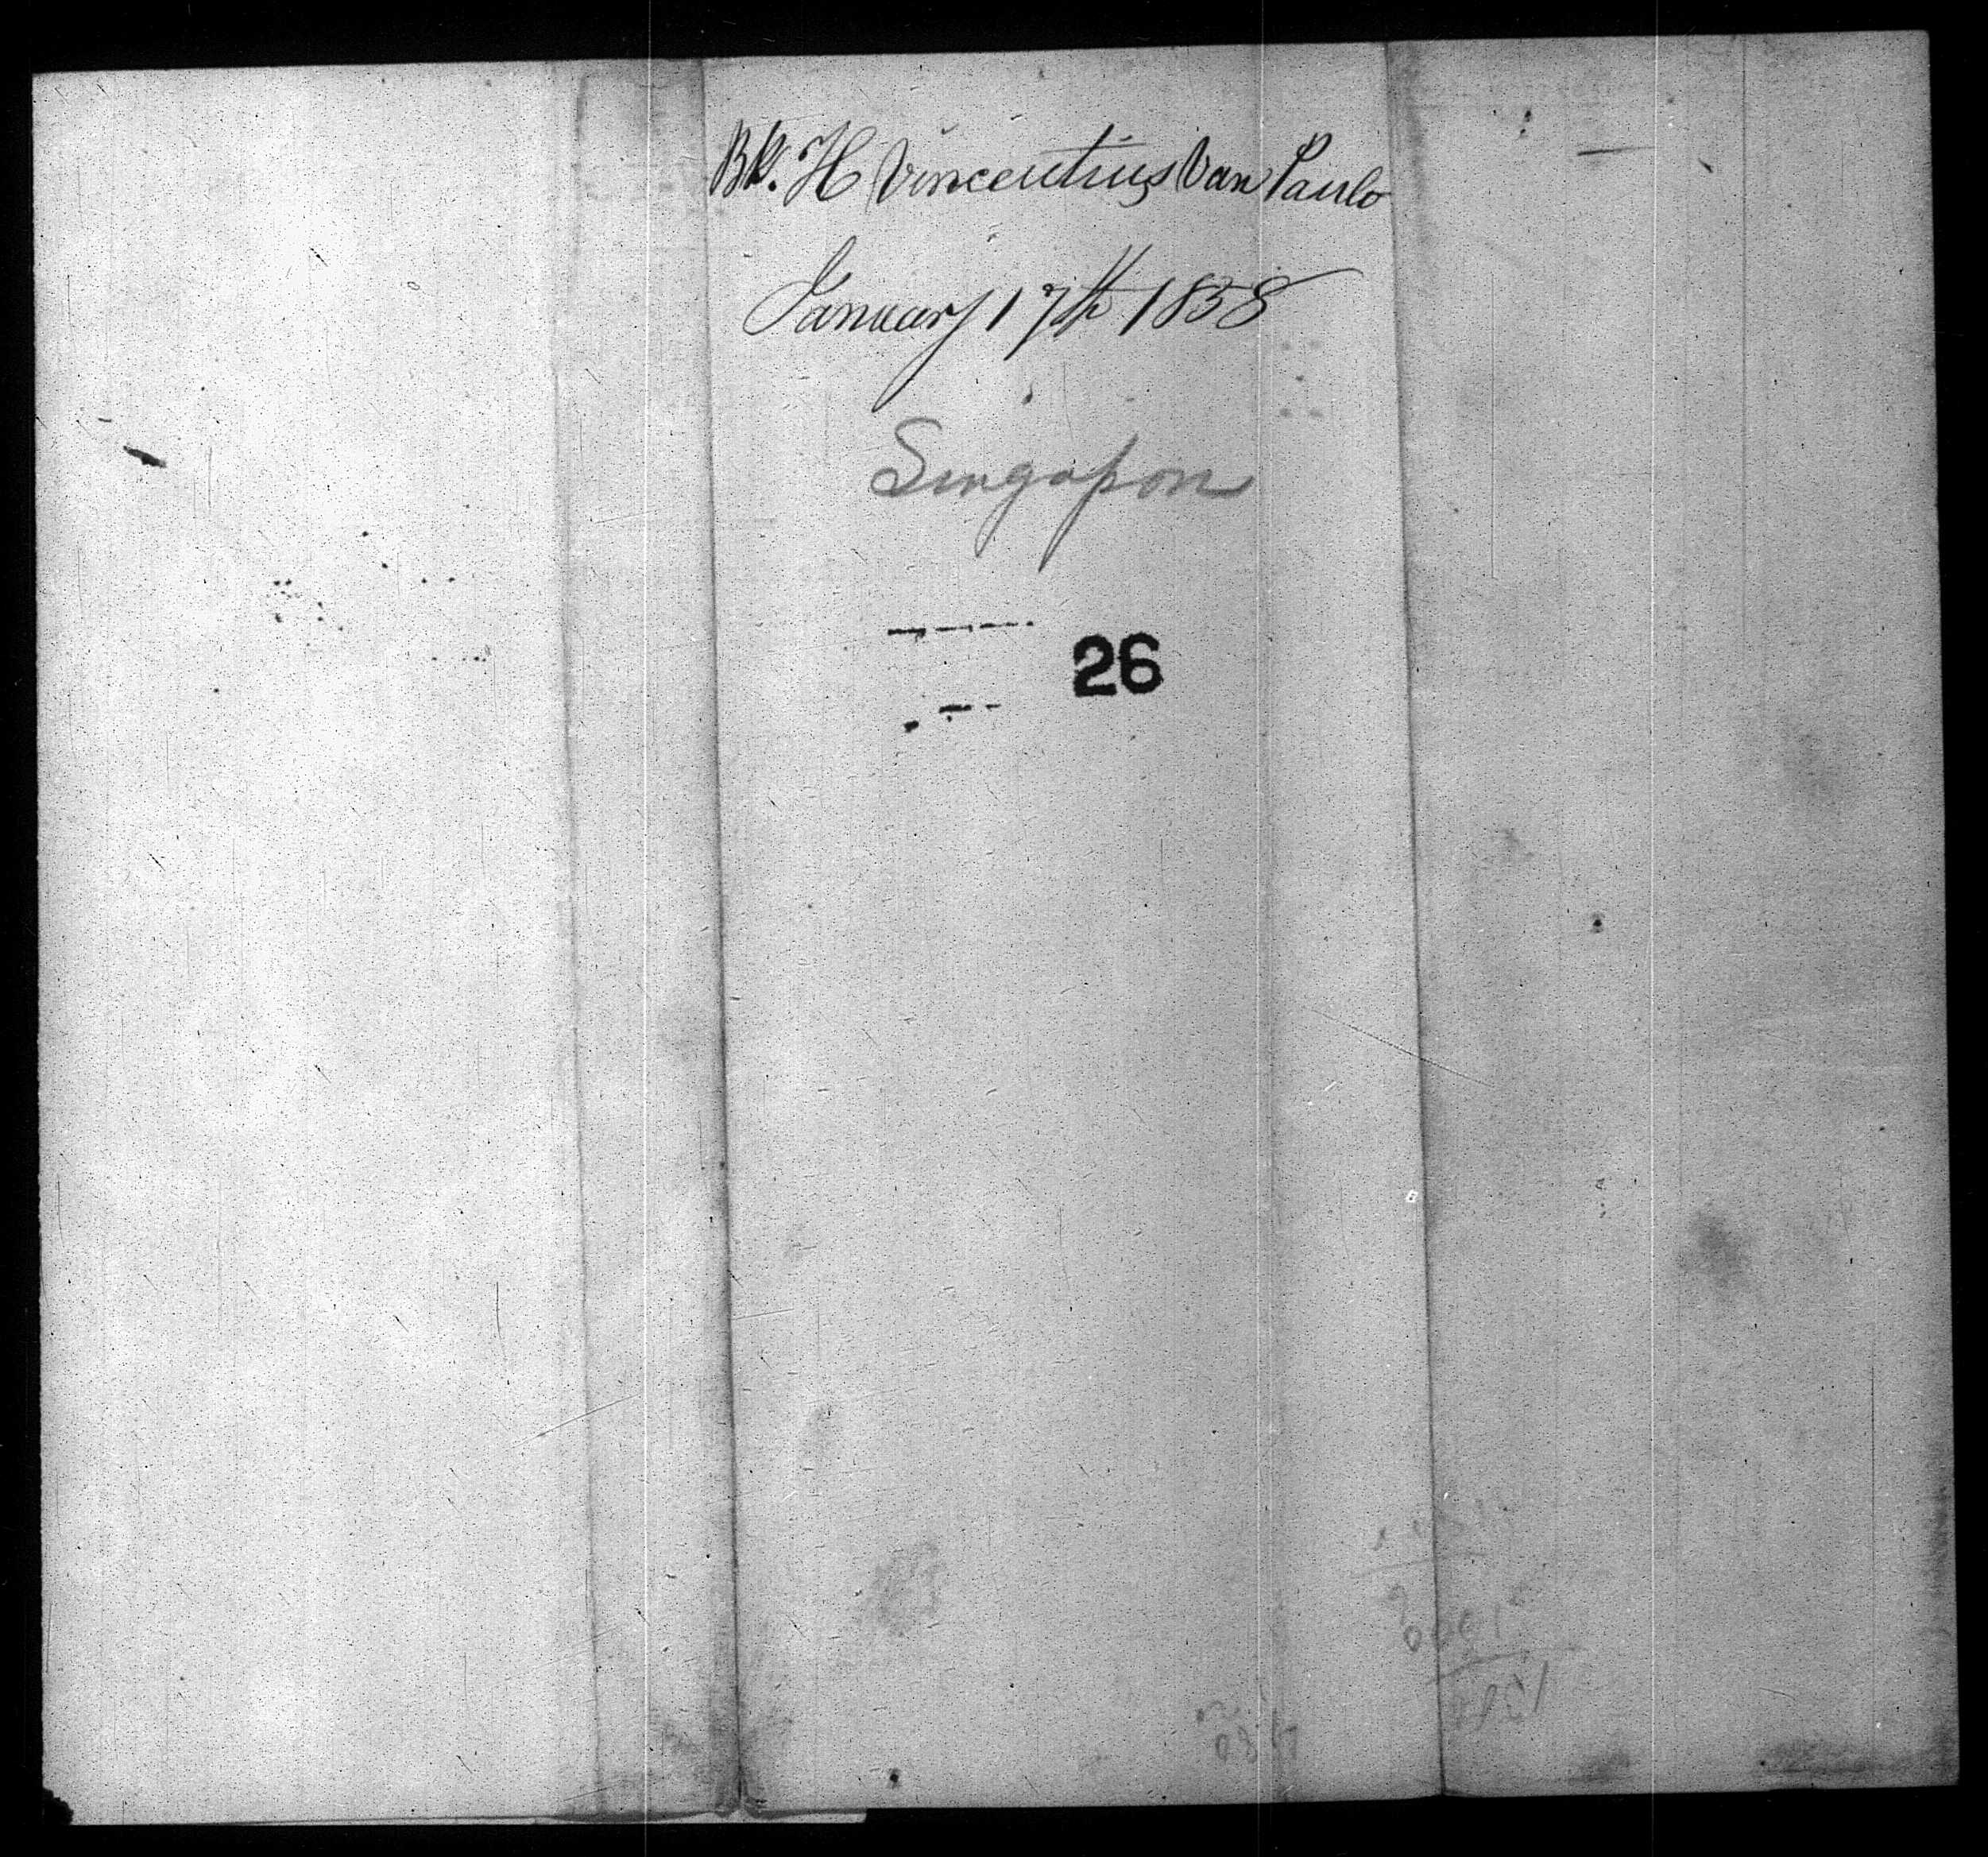 Bk. H Vincentius Van Paulo
January 17th 1858
Singapore
26